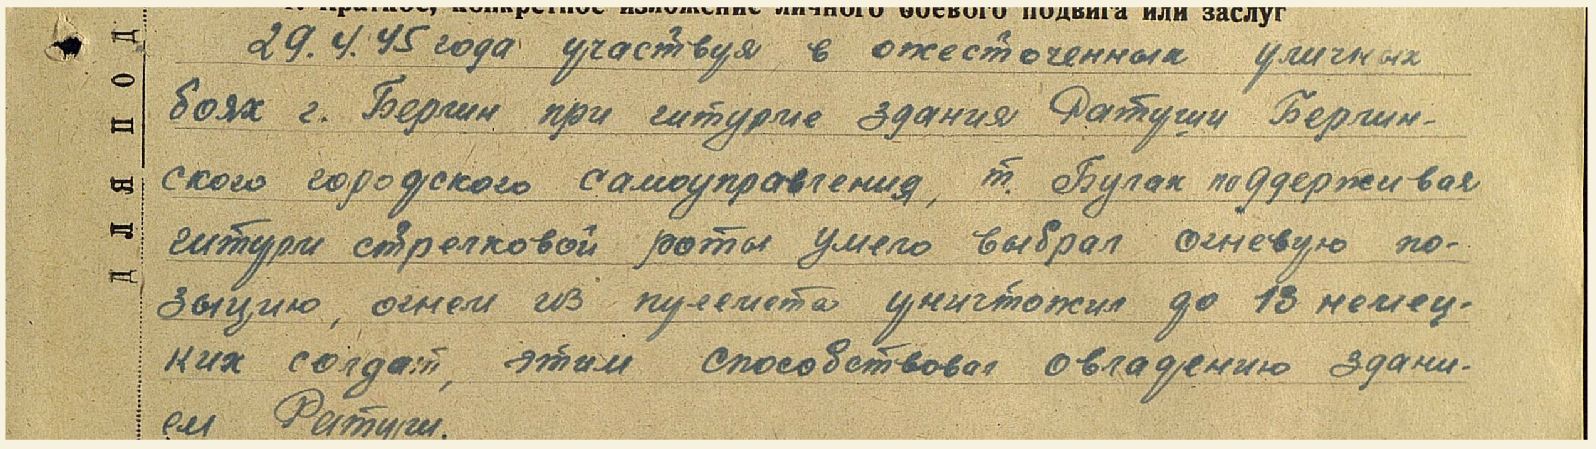 1. Краткое, конкретное изложение личного боевого подвига или заслуг
29.4.45 года участвуя в ожесточенных уличных
боях г. Берлин при штурме здания Ратуши Берлин-
ского городского самоуправления, т. Булах поддерживая
штурм стрелковой роты умело выбрал огневую по-
зыцию, огнем из пулемета уничтожил до 13 немец-
ких солдат, этим способствовал овладению здани-
ем Ратуши.
ДЛЯ ПОД